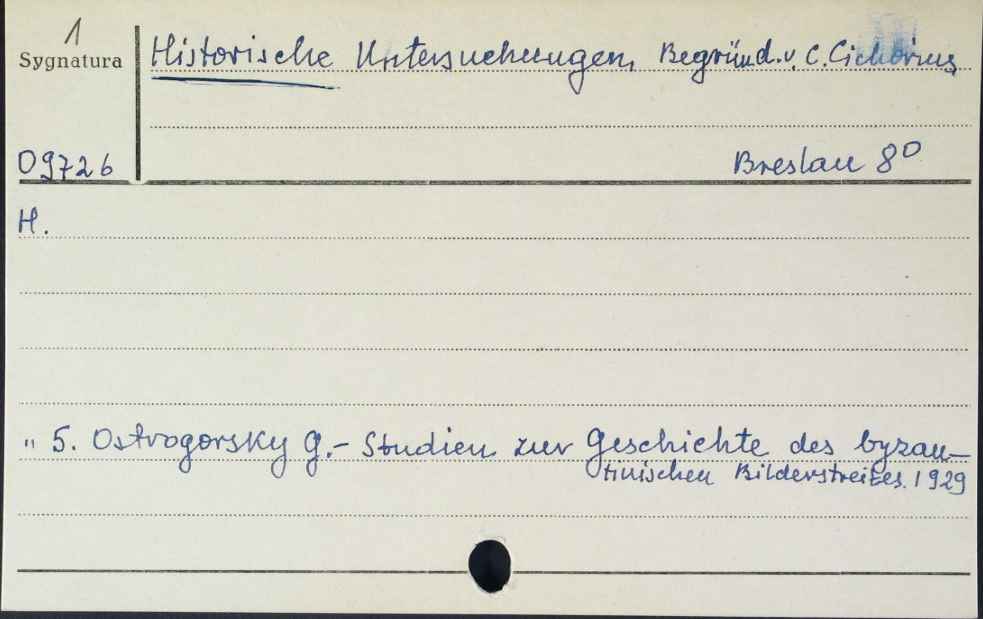 1
Sygnatura
Historische Untersuchungen, Begründ. v. C. Cichorius
09726
Breslau 8º
H.
" 5. Ostrogorsky G. - Studien zur Geschichte des byzan-
tinischen Bilderstreites. 1929